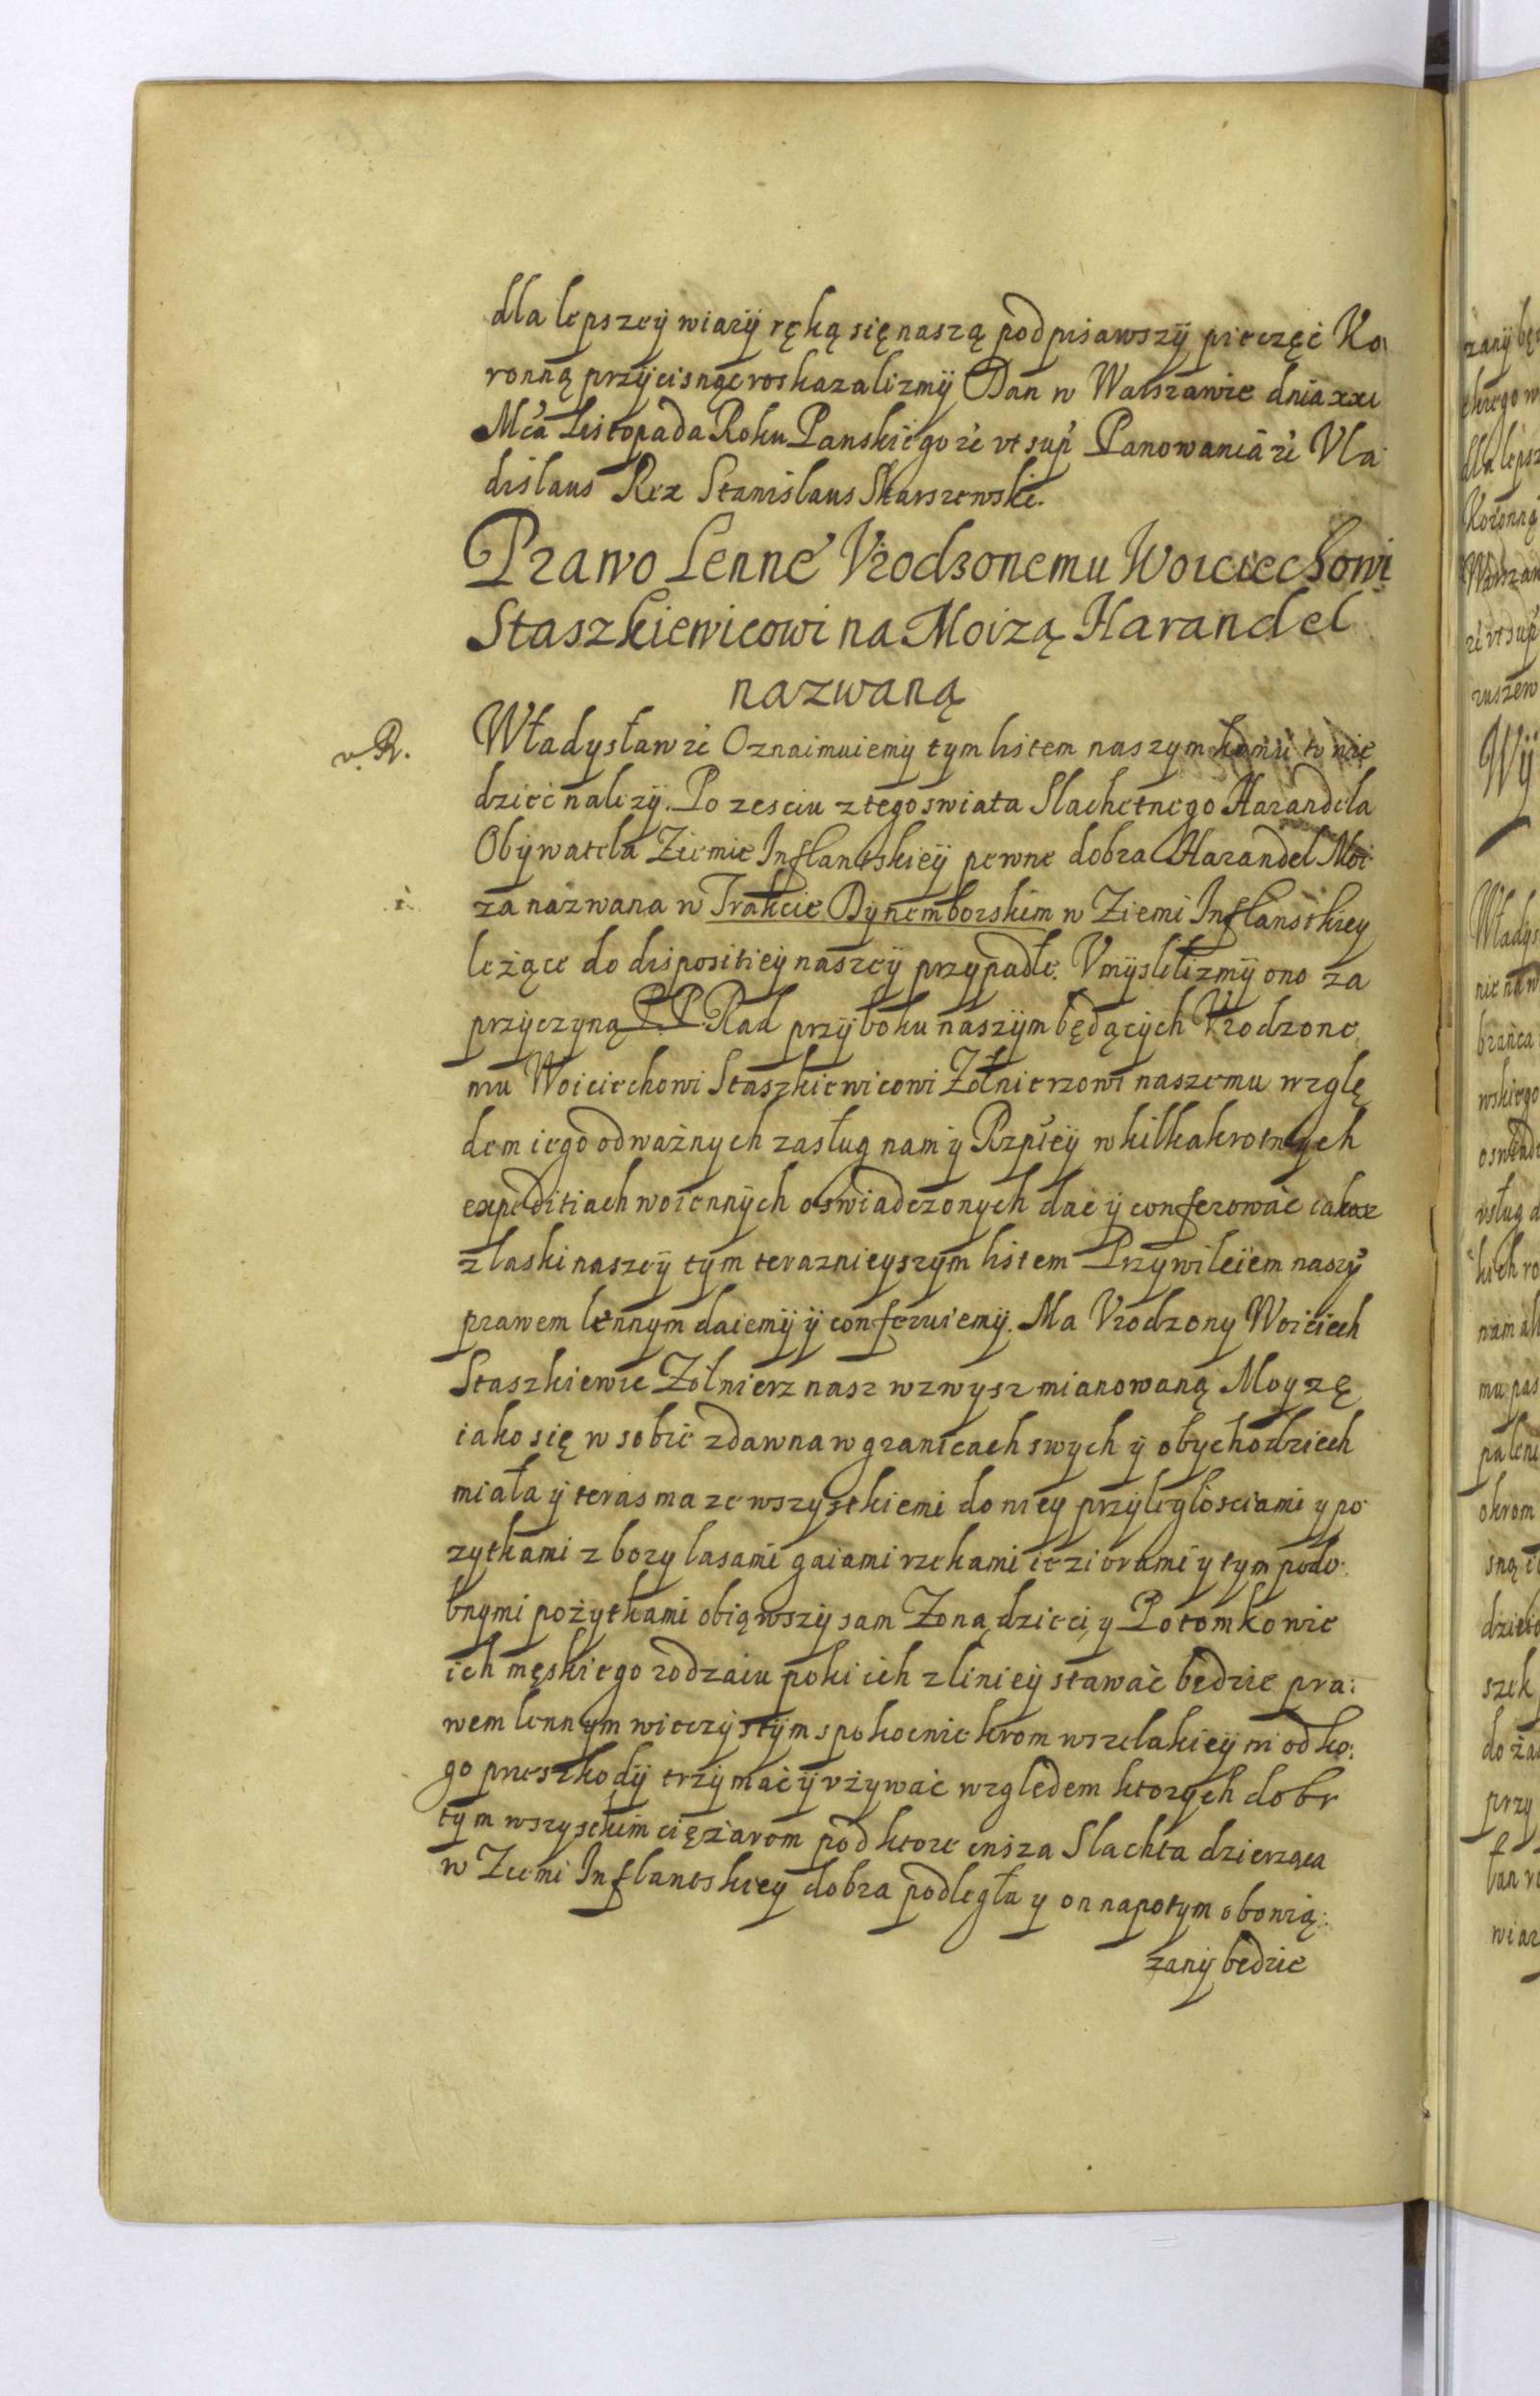 dla lepszeÿ wiarÿ ręką się naszą podpisawszÿ pieczęć Ko
ronną przÿcisnąc roskazalizmÿ Dan w Warszawie dnia xxi
Mca Listopada Roku Panskiego zc vt sup Panowania zc Vla
dislaus Rex Stanislaus Skarszewski.
Prawo Lenne Vrodzonemu Woiciechowi
Staszkiewicowi na Moizą Harandel
nazwaną
v. R. Władysław zc Oznaimuiemy tym listem naszym komu to wie
dzieć nalezÿ. Po zesciu z tego swiata Slachetnego Harandela
Obÿwatela Ziemie Inflantskieÿ pewne dobra Harandel Moi
za nazwana w Trakcie Dÿnemborskim w Ziemi Inflanstkiey
leżące do dispositieÿ naszeÿ przypadłe. Vmÿslilizmÿ ono za
przÿczyną P.P. Rad przÿ boku naszÿm będącÿch Vrodzone
mu Woiciechowi Staszkiewicowi Żołnierzowi naszemu wzglę
dem iego odważnych zasług nam ÿ Rzpteÿ w kilkakrotnych
expeditiach woiennÿch oswiadczonych dać ÿ conferować iakoz
z laski naszeÿ tÿm teraznieyszym listem Przywileiem naszÿ
prawem lennym daiemÿ ÿ conferuiemÿ. Ma Vrodzony Woiciech
Staszkiewic Żołnierz nasz wzwysz mianowaną Moyzę
iako się w sobie zdawna w granicach swych ÿ obychodziech
miała ÿ teras ma ze wszystkiemi do niey przÿległosciami y po
zytkami z bory lasami gaiami rzekami ieziorami y tym podo
bnymi pożytkami obiąwszÿ sam Żona, dzieci, y Potomkowie
ich męskiego rodzaiu poki ich z linieÿ stawać będzie pra:
wem lennym wieczÿstÿm spokoenie krom wszelakieÿ ni od ko:
go przeszkodÿ trzÿmać ÿ vżywać względem ktorych dobr
tym wszyschim ciężarom pod ktore insza Slachta dzierząca
w Ziemi Inflantskiey dobra podległa y on napotym obowią:
zanÿ będzie